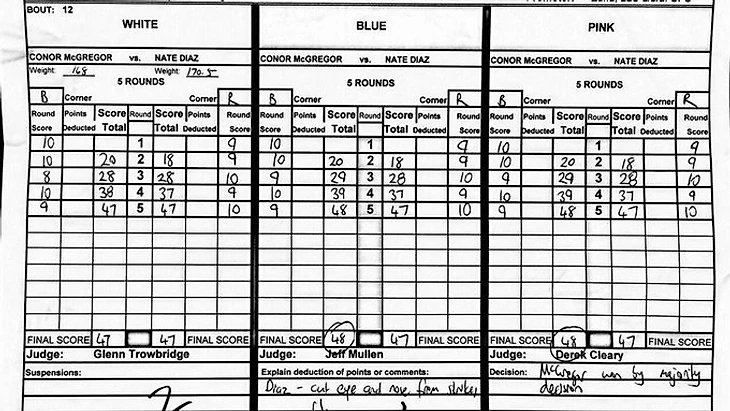 BOUT: 12
WHITE
CONOR McGREGOR vs. NATE DIAZ
Weight: 168 Weight: 170.5
5 ROUNDS
B Corner Corner R
Round Score Points Deducted Score Total Round Score Total Points Deducted Round Score
10 1 9
10 20 2 18 9
8 28 3 28 10
10 38 4 37 9
9 47 5 47 10
FINAL SCORE 47 47 FINAL SCORE
Judge: Glenn Trowbridge
Suspensions:
BLUE
CONOR McGREGOR vs. NATE DIAZ
5 ROUNDS
B Corner Corner R
Round Score Points Deducted Score Total Round Score Total Points Deducted Round Score
10 1 9
10 20 2 18 9
9 29 3 28 10
10 39 4 37 9
9 48 5 47 10
FINAL SCORE 48 47 FINAL SCORE
Judge: Jeff Mullen
Explain deduction of points or comments:
Diaz - cut eye and nose from strikes
PINK
CONOR McGREGOR vs. NATE DIAZ
5 ROUNDS
B Corner Corner R
Round Score Points Deducted Score Total Round Score Total Points Deducted Round Score
10 1 9
10 20 2 18 9
9 29 3 28 10
10 39 4 37 9
9 48 5 47 10
FINAL SCORE 48 47 FINAL SCORE
Judge: Derek Cleary
Decision: McGregor won by majority
decision